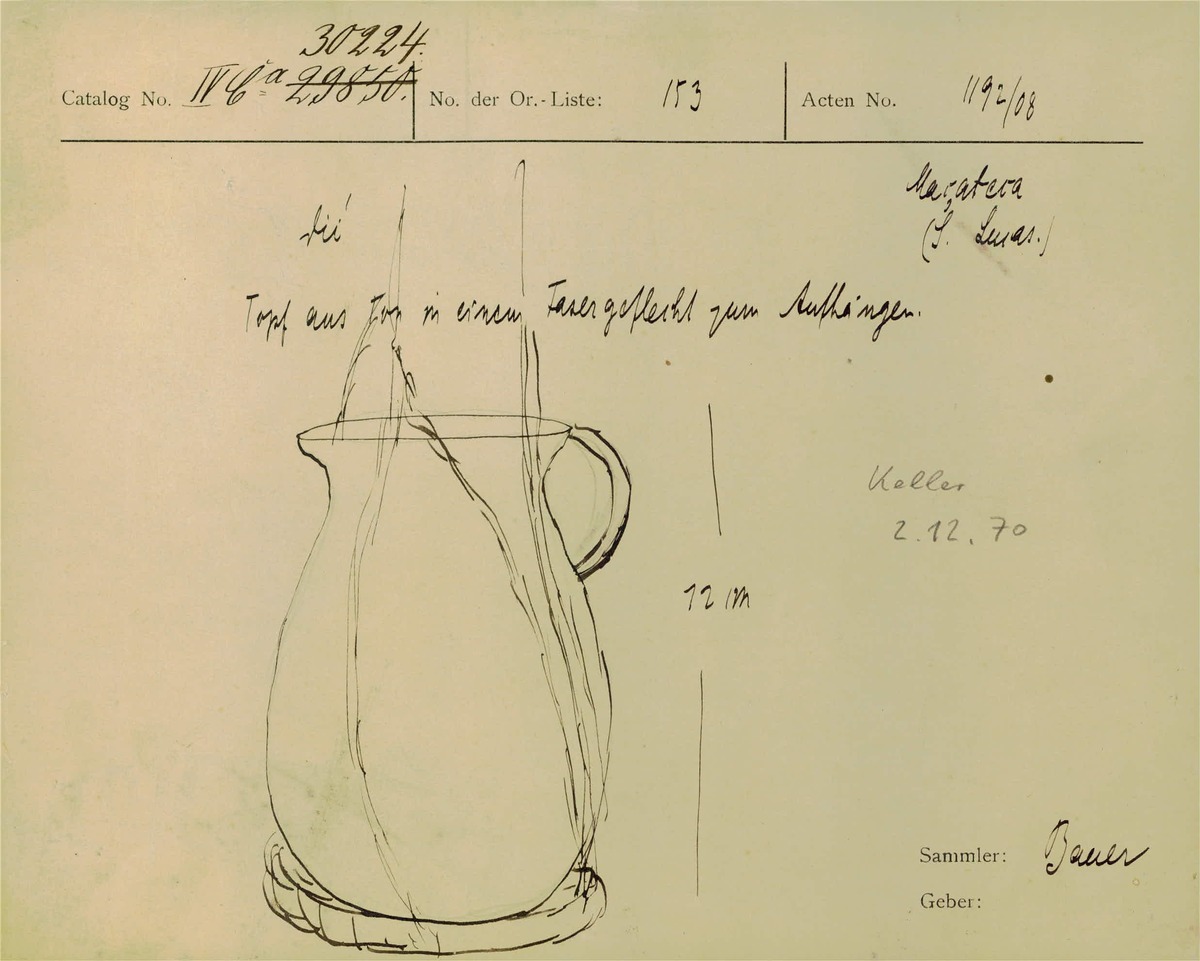 30224.
Catalog No. IV Ca 29850. No. der Or.-Liste: 153 Acten No. 1192/08
Maçateca
(S. Lucas.)
Topf aus Ton in einem Fasergeflecht zum Aufhängen.
Keller
2.12.70
12 cm
Sammler: Bauer
Geber: